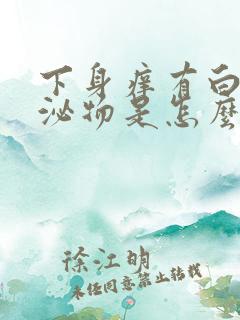 下身痒有白
泌物是怎麽
徐江明
未经同意禁止转载